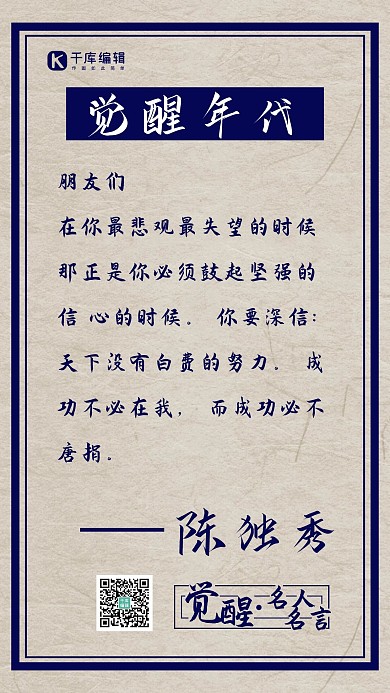 千库编辑
觉醒年代
朋友们
在你最悲观最失望的时候
那正是你必须鼓起坚强的
信 心的时候。 你要深信:
天下没有白费的努力。 成
功不必在我, 而成功必不
唐捐。
——陈独秀
觉醒·名人
名言